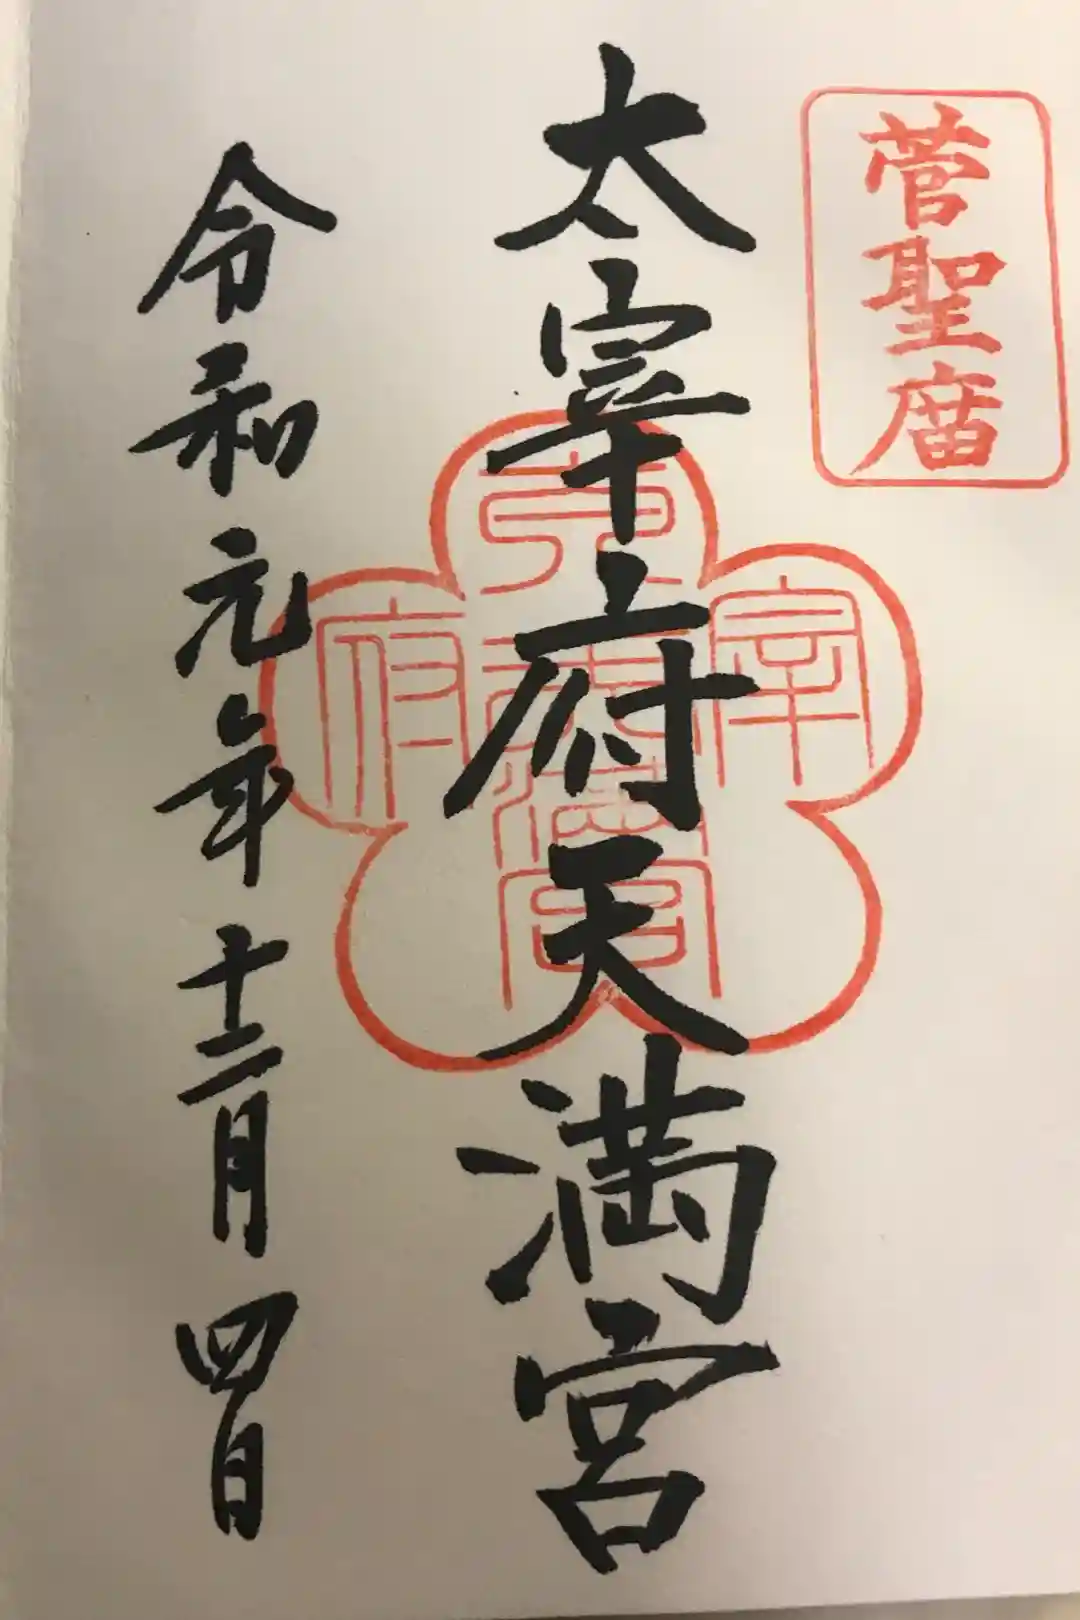 菅聖庿
太宰府天満宮
宰
府
天満宮
令和元年十二月四日